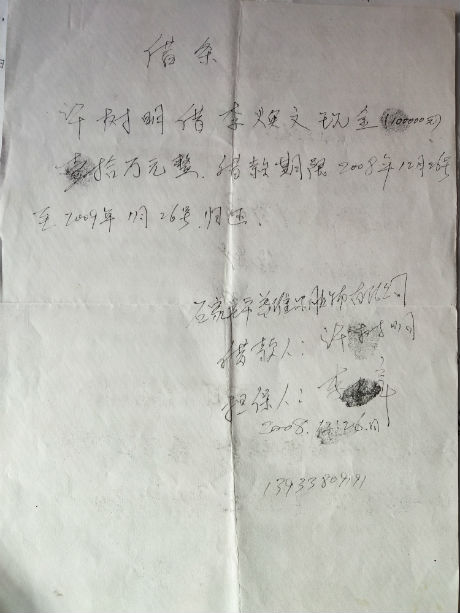 借条
许树明借李焕文现金(100000元)
壹拾万元整.借款期限2008年12月26号
至2009年1月26号.归还.
石家庄 服饰有限公司
借款人：许树明
担保人：李
2008.12.26.
13933809191